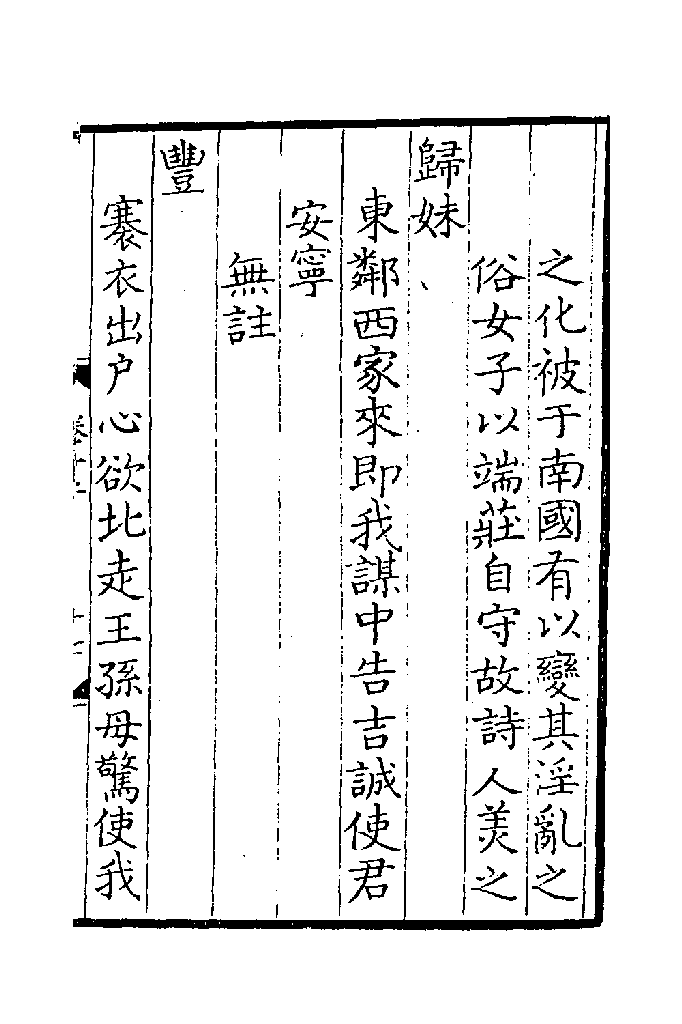 之化被于南國有以變其淫亂之
俗女子以端莊自守故詩人美之
歸妹
東鄰西家來即我謀中告吉誠使君
安寧
無註
豐
褰衣出户心欲北走王孫母驚使我